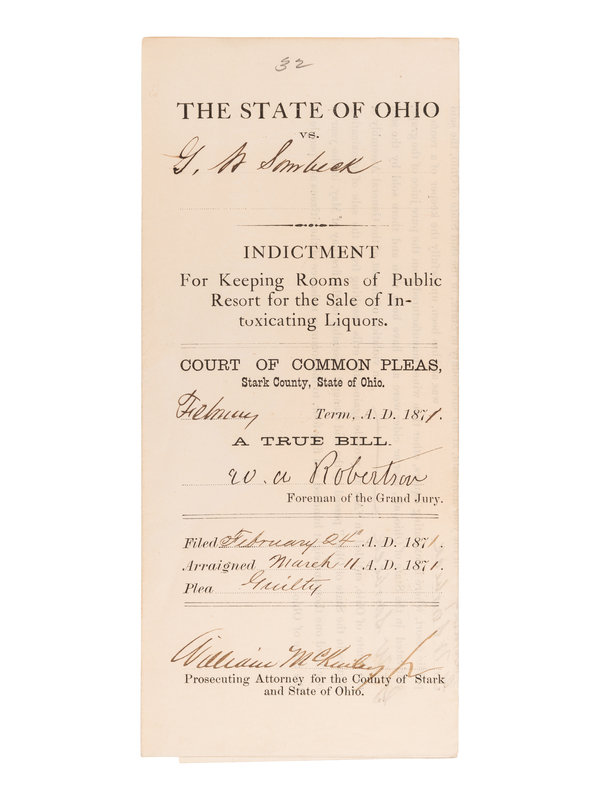 32
THE STATE OF OHIO
vs.
G. W Sombeck
INDICTMENT
For Keeping Rooms of Public
Resort for the Sale of In-
toxicating Liquors.
COURT OF COMMON PLEAS,
Stark County, State of Ohio.
February Term, A. D. 1871.
A TRUE BILL.
W. A Robertson
Foreman of the Grand Jury.
Filed February 24" A. D. 1871.
Arraigned March 11 A. D. 1871.
Plea Guilty
William McKinley Jr
Prosecuting Attorney for the County of Stark
and State of Ohio.